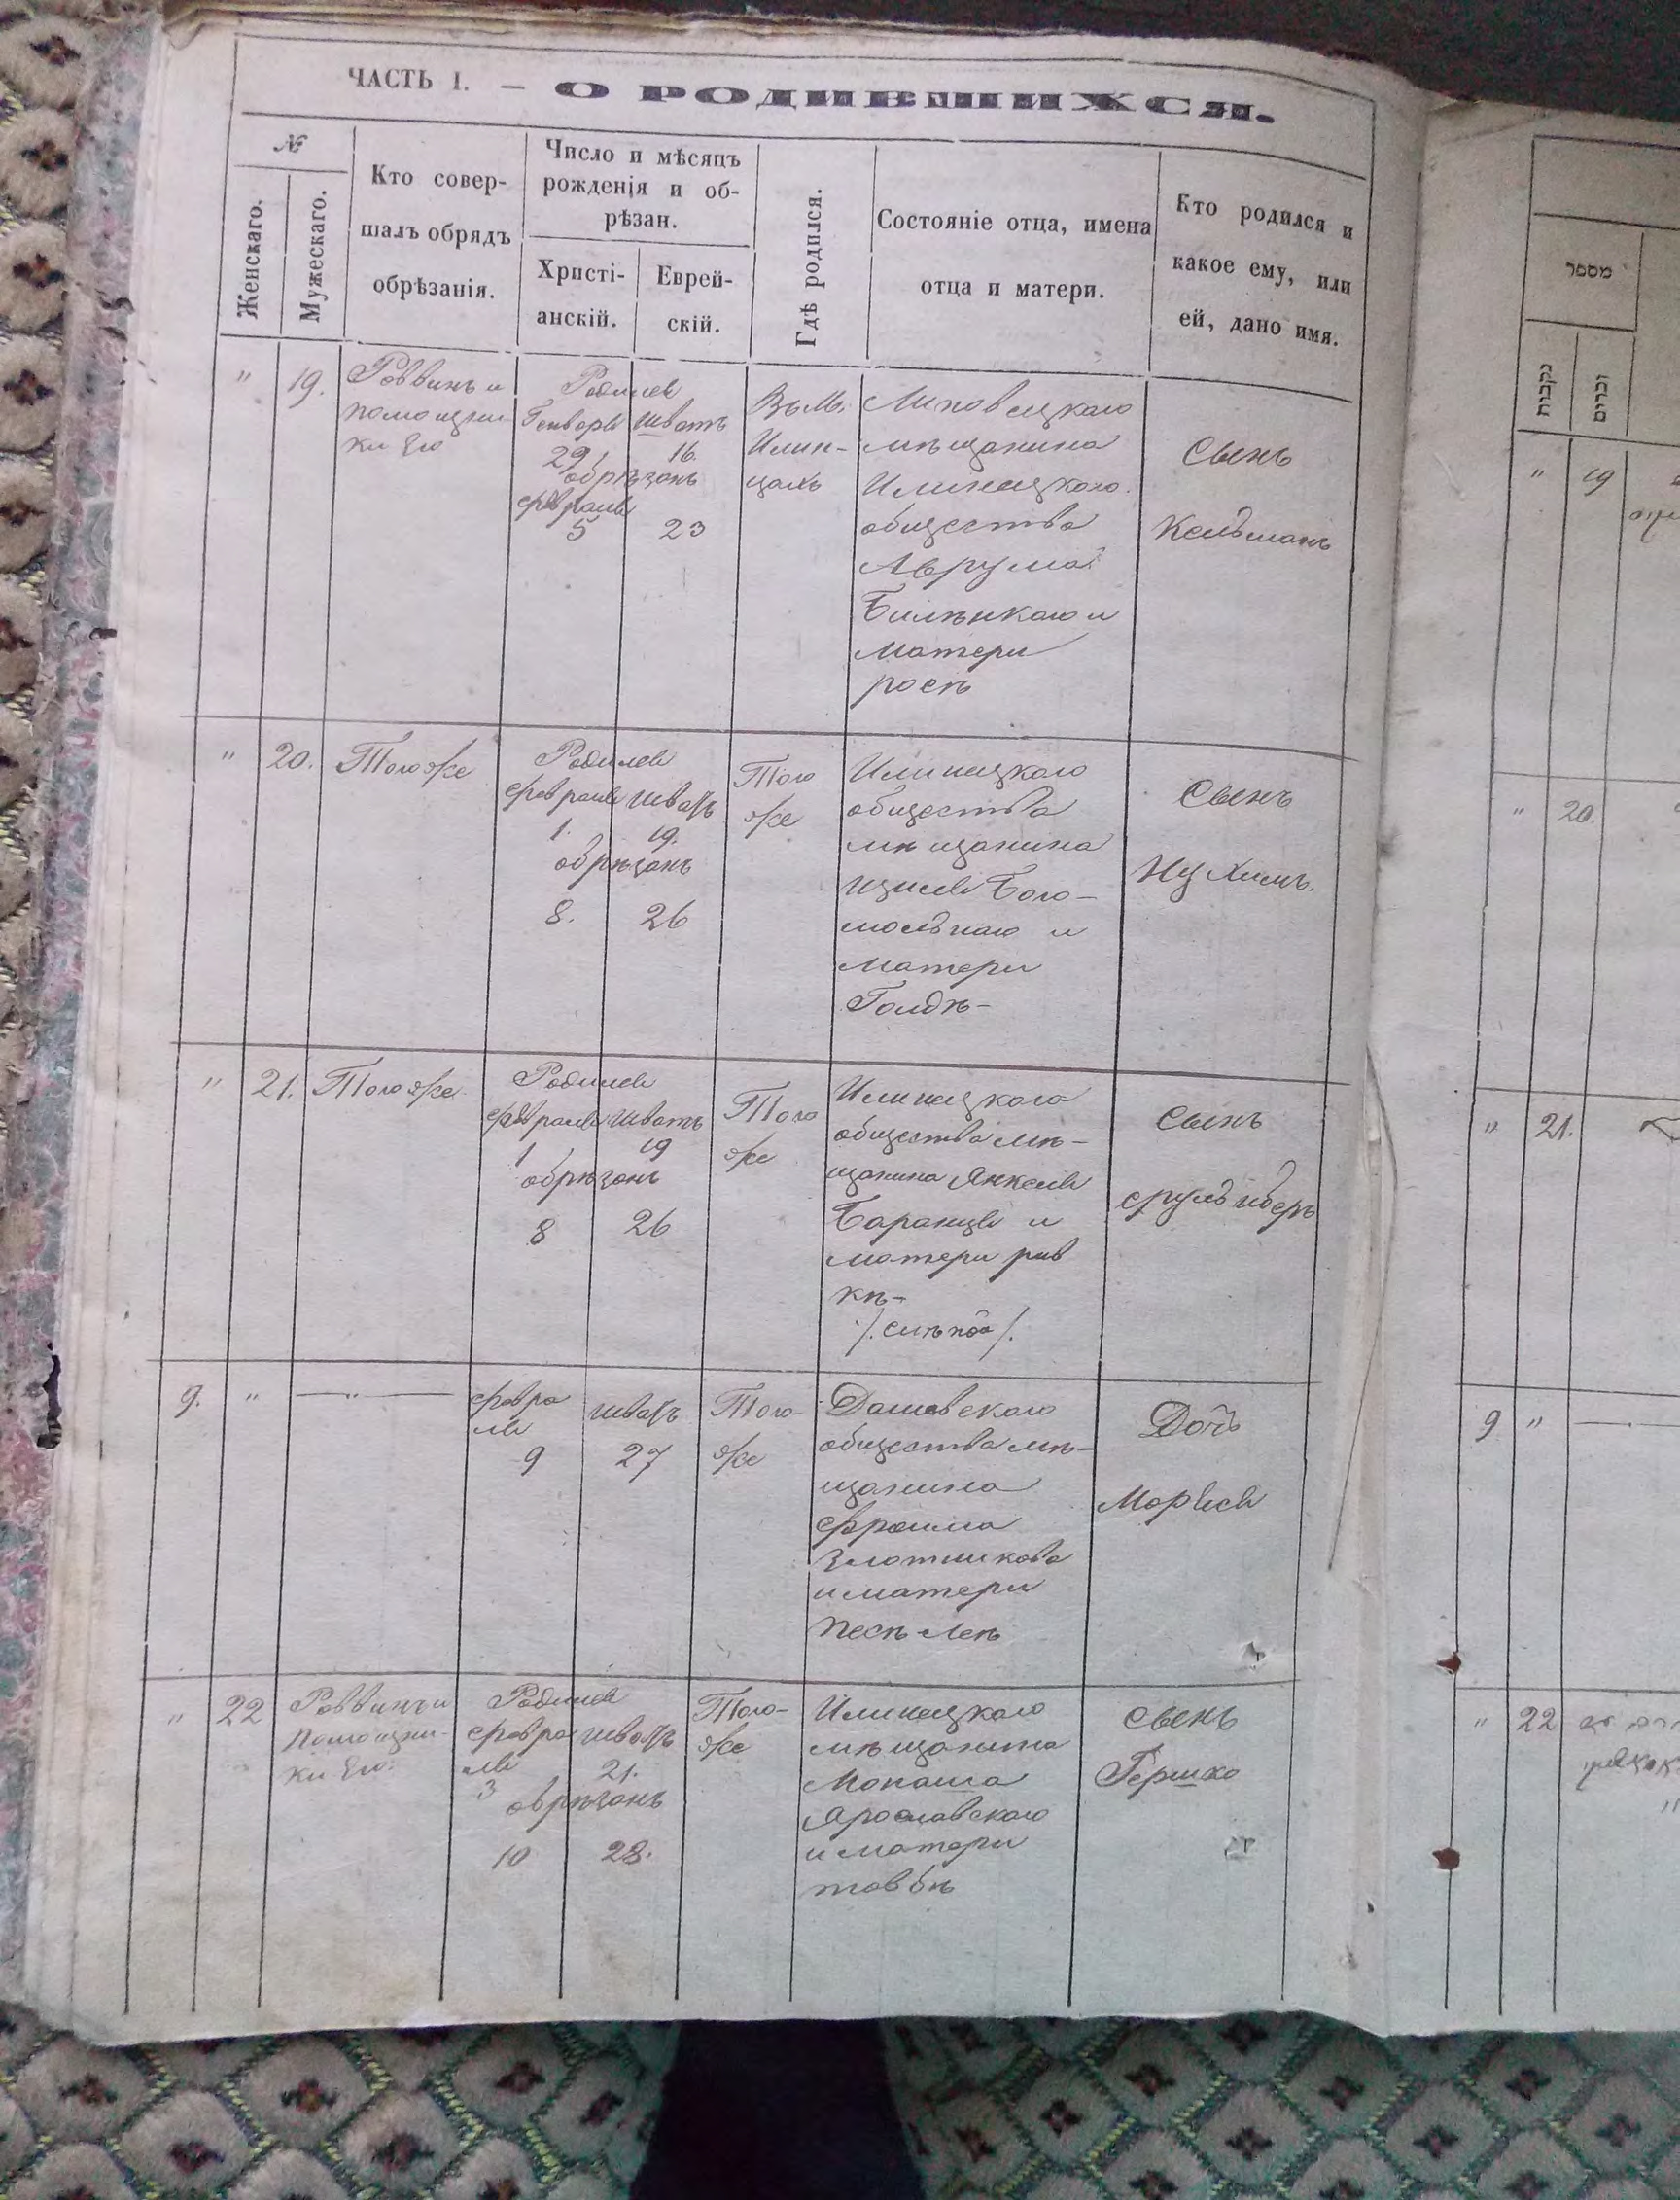 ЧАСТЬ I. — О РОДИВШИХСЯ.
№
Женскаго.
Мужескаго.
Кто совер-
шалъ обрядъ
обрѣзанія.
Число и мѣсяцъ
рожденія и об-
рѣзан.
Христі-
анскій.
Еврей-
скій.
Гдѣ родился.
Состояніе отца, имена
отца и матери.
Кто родился и
какое ему, или
ей, дано имя.
" 19.
Роввинъ и
помощни
ки Его
Родился
Генваря Шватъ
29 16.
обрѣзанъ
февраля
5 23
Въ М.
Илин-
цахъ
Липовецкаго
мѣщанина
Илинецкаго
общества
Аврума
Билѣнкаго и
матери
росѣ
Сынъ
Кельманъ
" 20. Тогоже
Родился
февраля шватъ
1. 19.
обрѣзанъ
8. 26
Того
же
Илинецкаго
общества
мѣщанина
Иціля Бого-
мольнаго и
матери
Голдѣ-
Сынъ
Нухимъ.
" 21. Тогоже
Родился
февраля шватъ
1 19
обрѣзанъ
8 26
Того
же
Илинецкаго
общества мѣ-
щанина Янкеля
Баранця и
матери рив
кѣ-
/. слѣпоа /.
сынъ
сруль иберъ
9. " — " —
февра
ля
9
шватъ
27
Того-
же
Дашевскаго
общества мѣ-
щанина
ефроима
Злотникова
и матери
песѣ Леѣ
Дочь
Марься
" 22
Роввинъ и
помощни-
ки Его.
Родился
февра шватъ
ля 21.
3
обрѣзанъ
10 28.
Того-
же
Илинецкаго
мѣщанина
Монаша
Ярославскаго
и матери
товбѣ
сынъ
Гершко
מספר
נקבות
זכרים
" 19
" 20.
" 21.
9 " —
" 22